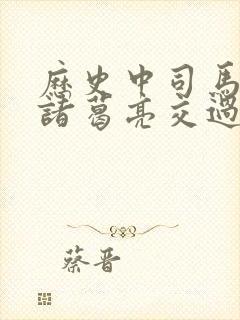 歷史中司馬
諸葛亮交過
蔡晋